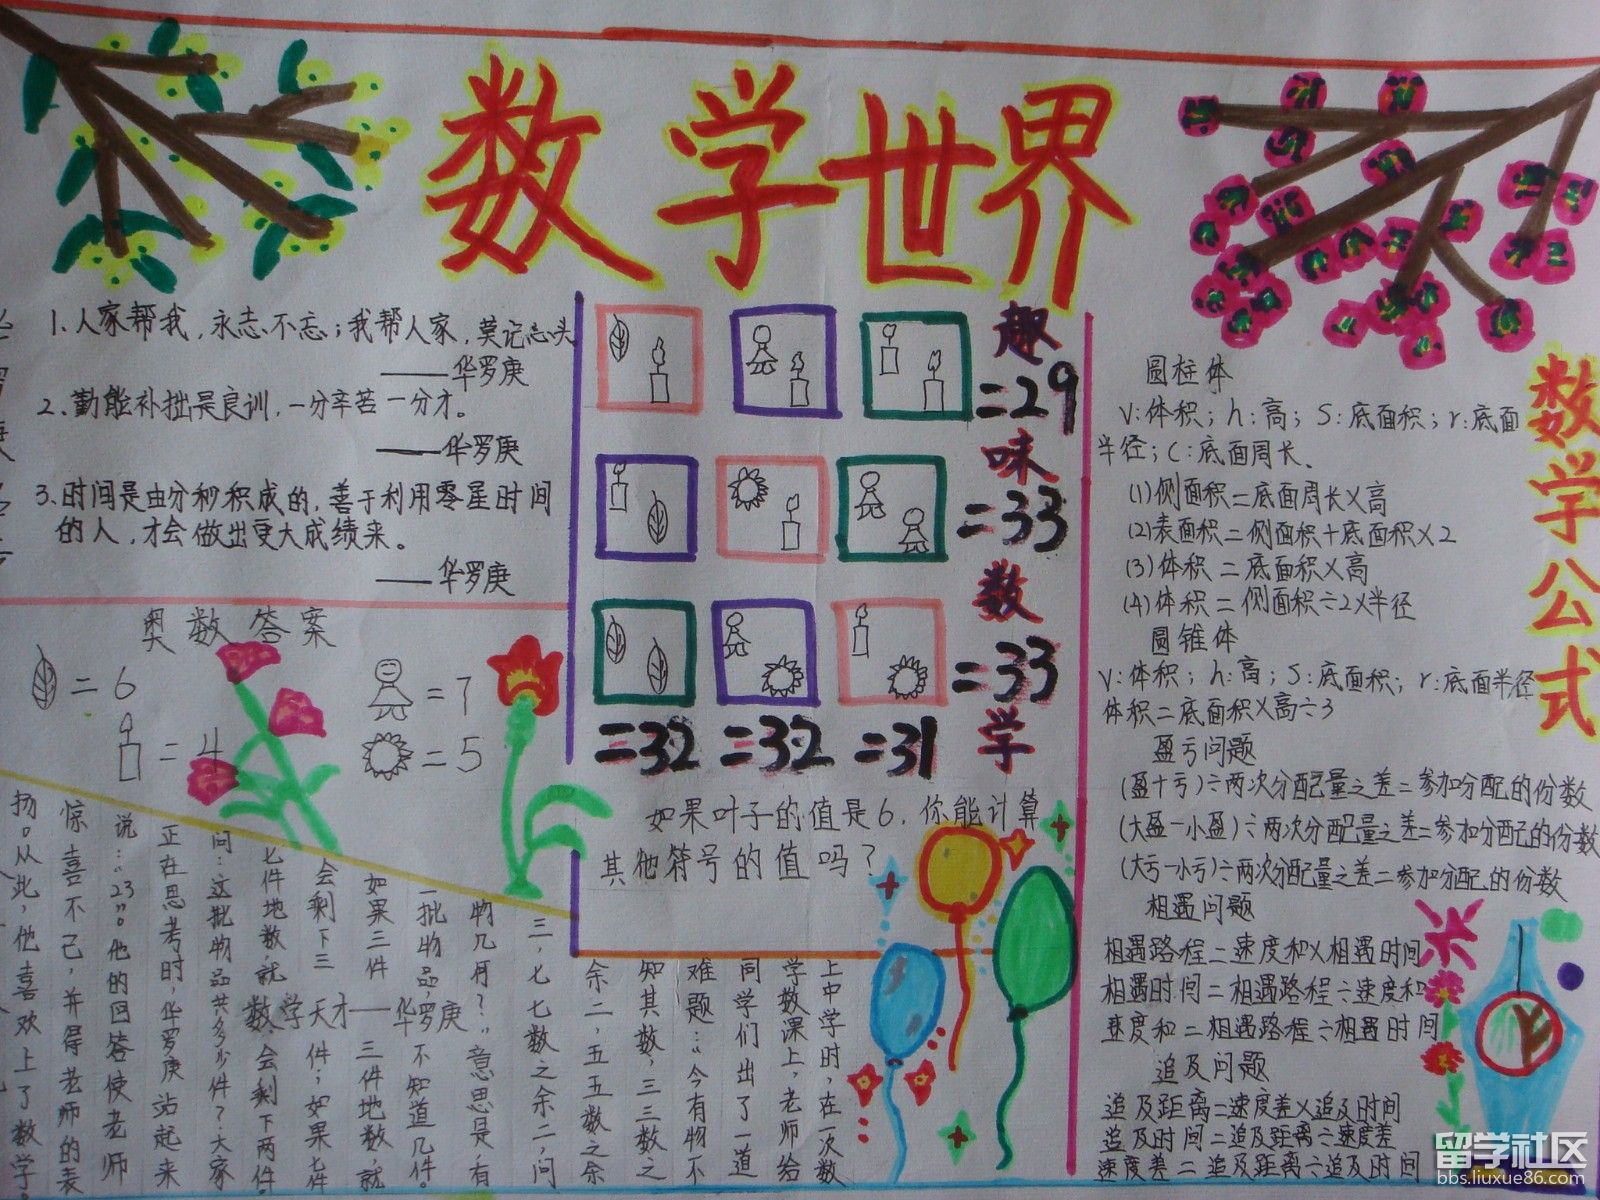 数学世界
1.人家帮我,永志不忘;我帮人家,莫记心头
——华罗庚
2.勤能补拙是良训,一分辛苦一分才。
——华罗庚
3.时间是由分秒积成的,善于利用零星时间
的人,才会做出更大成绩来。
——华罗庚
奥数答案
=6
=7
=4
=5
趣味数学
=29
=33
=33
=32 =32 =31
如果叶子的值是6,你能计算
其他符号的值吗?
数学公式
圆柱体
V:体积;h:高;S:底面积;r:底面
半径;C:底面周长、
(1)侧面积=底面周长×高
(2)表面积=侧面积+底面积×2
(3)体积=底面积×高
(4)体积=侧面积÷2×半径
圆锥体
V:体积;h:高;S:底面积;r:底面半径
体积=底面积×高÷3
盈亏问题
(盈+亏)÷两次分配量之差=参加分配的份数
(大盈-小盈)÷两次分配量之差=参加分配的份数
(大亏-小亏)÷两次分配量之差=参加分配的份数
相遇问题
相遇路程=速度和×相遇时间
相遇时间=相遇路程÷速度和
速度和=相遇路程÷相遇时间
追及问题
追及距离=速度差×追及时间
追及时间=追及距离÷速度差
速度差=追及距离÷追及时间
数学天才——华罗庚
上中学时,在一次数
学数课上,老师给
同学们出了一道
难题:“今有物不
知其数,三三数之
余二,五五数之余
三,七七数之余二,问
物几何?”意思是,有
一批物品,不知道几件。
如果三件三件地数,就
会剩下三件;如果七件
七件地数,就会剩下两件。
问:这批物品共多少件?大家
正在思考时,华罗庚站起来
说:“23”。他的回答使老师
惊喜不己,并得老师的表
扬。从此,他喜欢上了数学。
留学社区
bbs.liuxue86.com